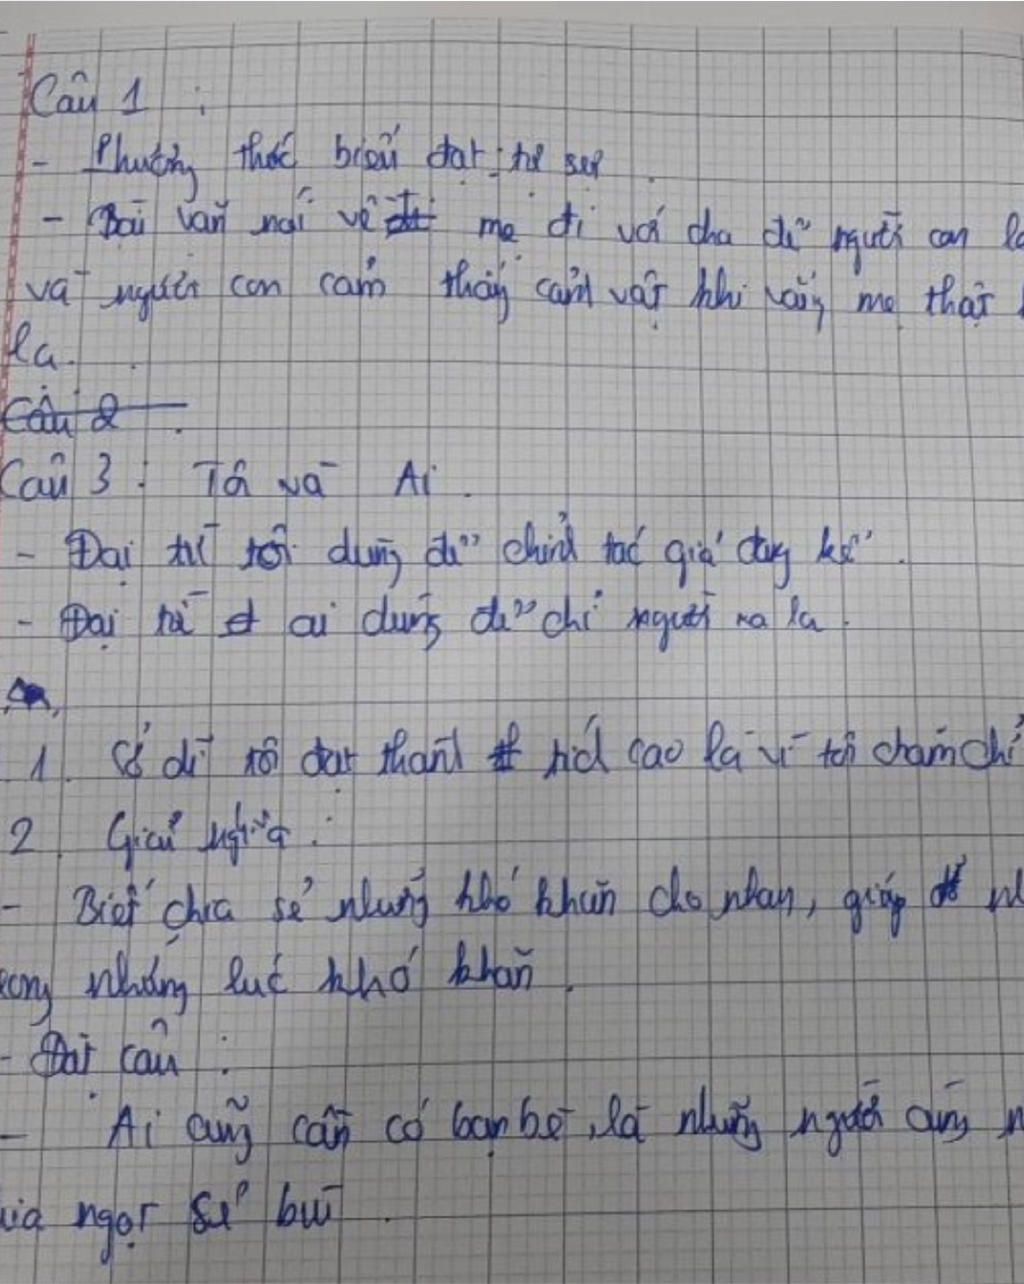 Câu 1 :
- Phương thức biểu đạt : tự sự
- Bài văn nói về mẹ đi với cha để người con
và người con cảm thấy cảnh vật khi vắng mẹ thật
lạ.
Câu 2
Câu 3 : Tôi và Ai.
- Đại từ tôi dùng để chỉnh tác giả đang kể.
- Đại từ ai dùng để chỉ người xa lạ.
1. Sở dĩ tôi đạt thành tích cao là vì tôi chăm chỉ
2. Giải nghĩa :
- Biết chia sẻ những khó khăn cho nhau, giúp
trong những lúc khó khăn.
- Đặt câu :
- Ai cũng cần có bạn bè, là những người cùng
chia ngọt sẻ bùi